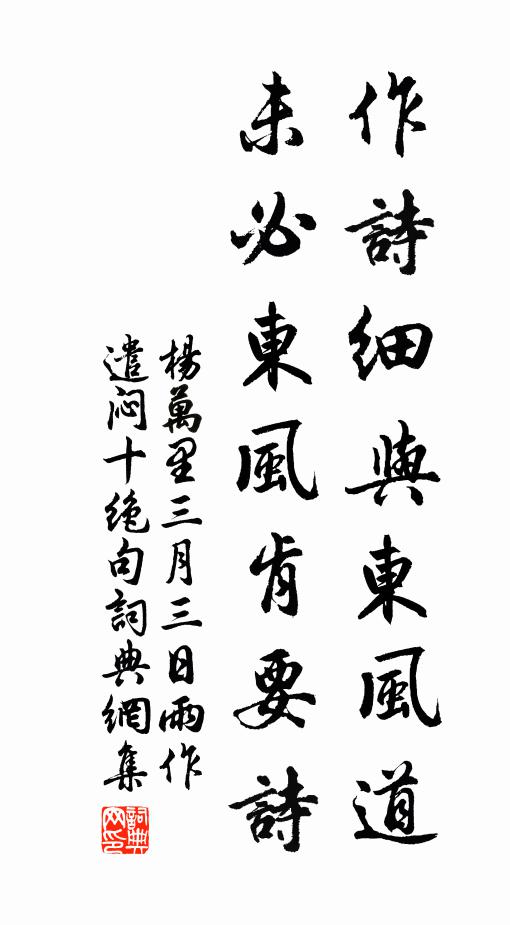 作詩細與東風道
未必東風肯要詩
楊萬里三月三日雨作
遣悶十絕句詞典網集
詞典
网印